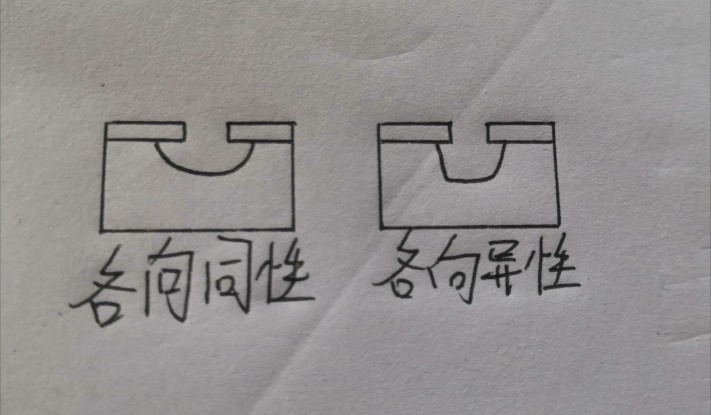 各向同性
各向异性